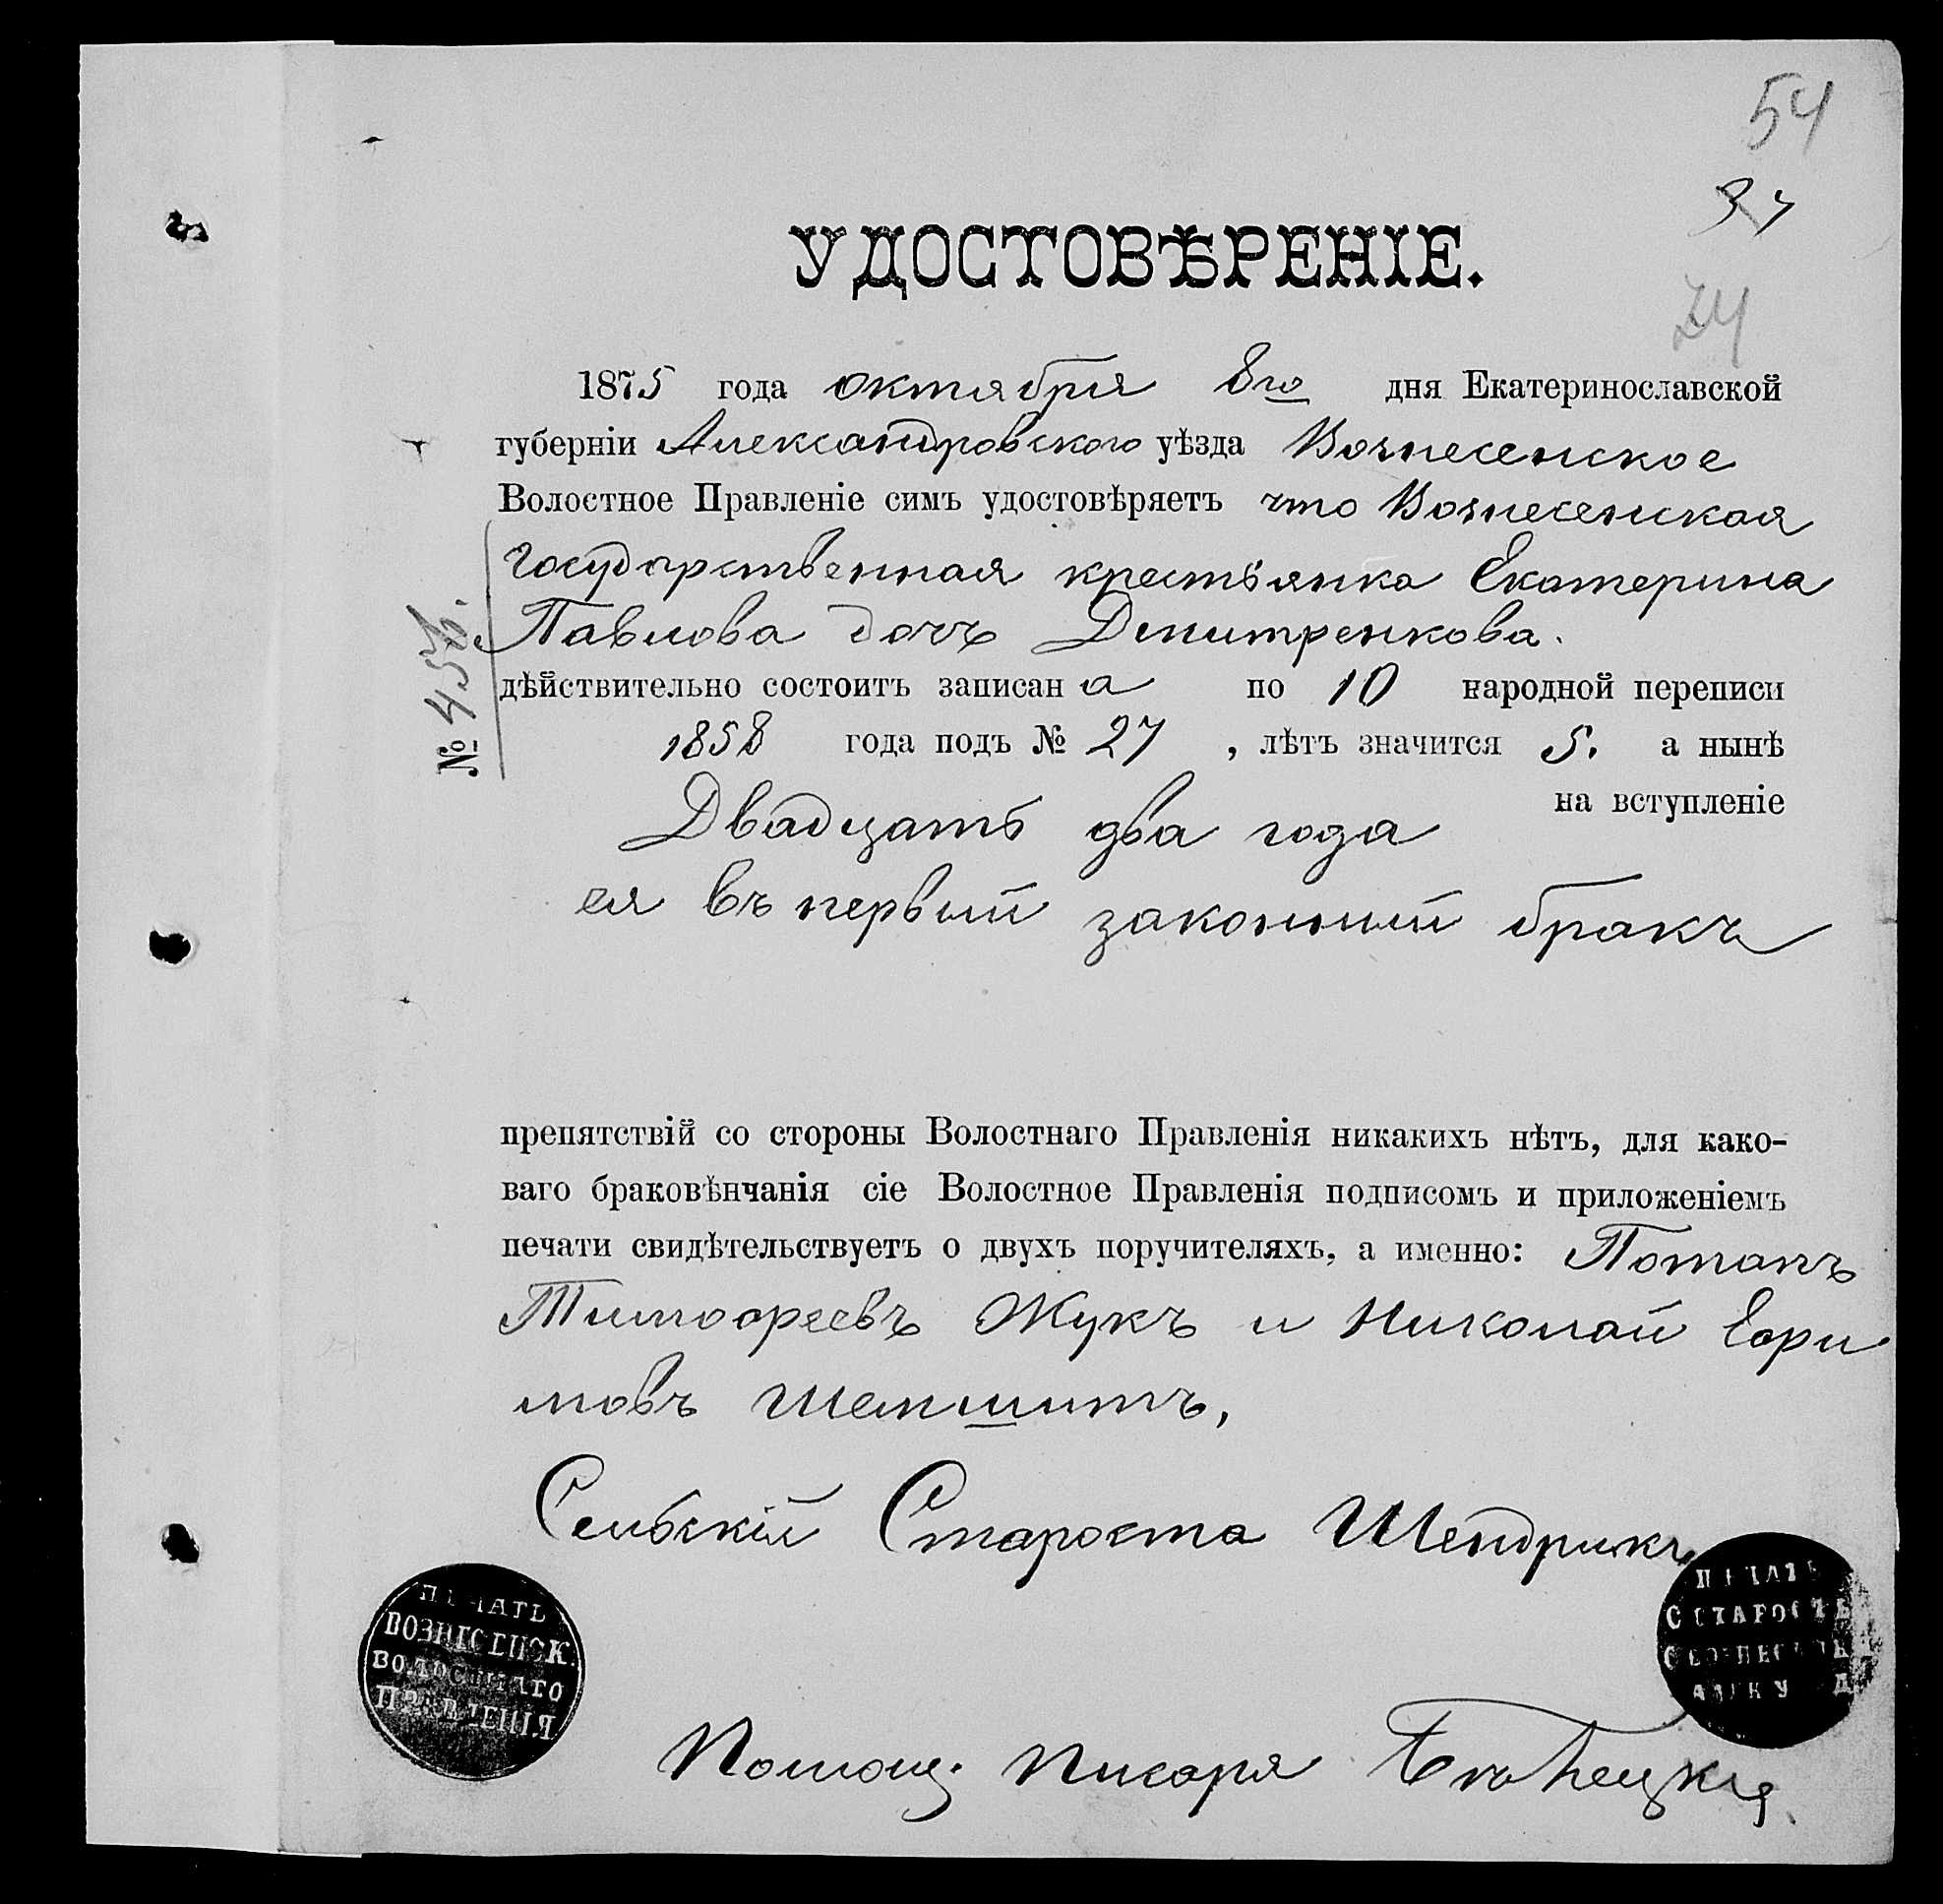 54
37
24
УДОСТОВѢРЕНІЕ.
1875 года октября 8го дня Екатеринославской
губерніи Александровского уѣзда Вознесенское
Волостное Правленіе симъ удостовѣряетъ что Вознесенская
Государственная крестьянка Екатерина
Павлова дочъ Дмитренкова.
дѣйствительно состоитъ записана по 10 народной переписи
1858 года подъ № 27, лѣтъ значится 5. а нынѣ
на вступленіе
Двадцать два года
ея въ первый законный бракъ
№
препятствій со стороны Волостнаго Правленія никакихъ нѣтъ, для како-
ваго браковѣнчанія сіе Волостное Правленія подписомъ и приложеніемъ
печати свидѣтельствуетъ о двухъ поручителяхъ, а именно: Потапъ
Тимофеевъ Жукъ и Николай Ефи
мовъ
Сельскій Староста Шендрикъ
ПЕЧАТЬ
ВОЗНЕСЕНСК.
ВОЛОСТНАГО
ПРАВЛЕНІЯ
ПЕЧАТЬ
Помощ. писаря